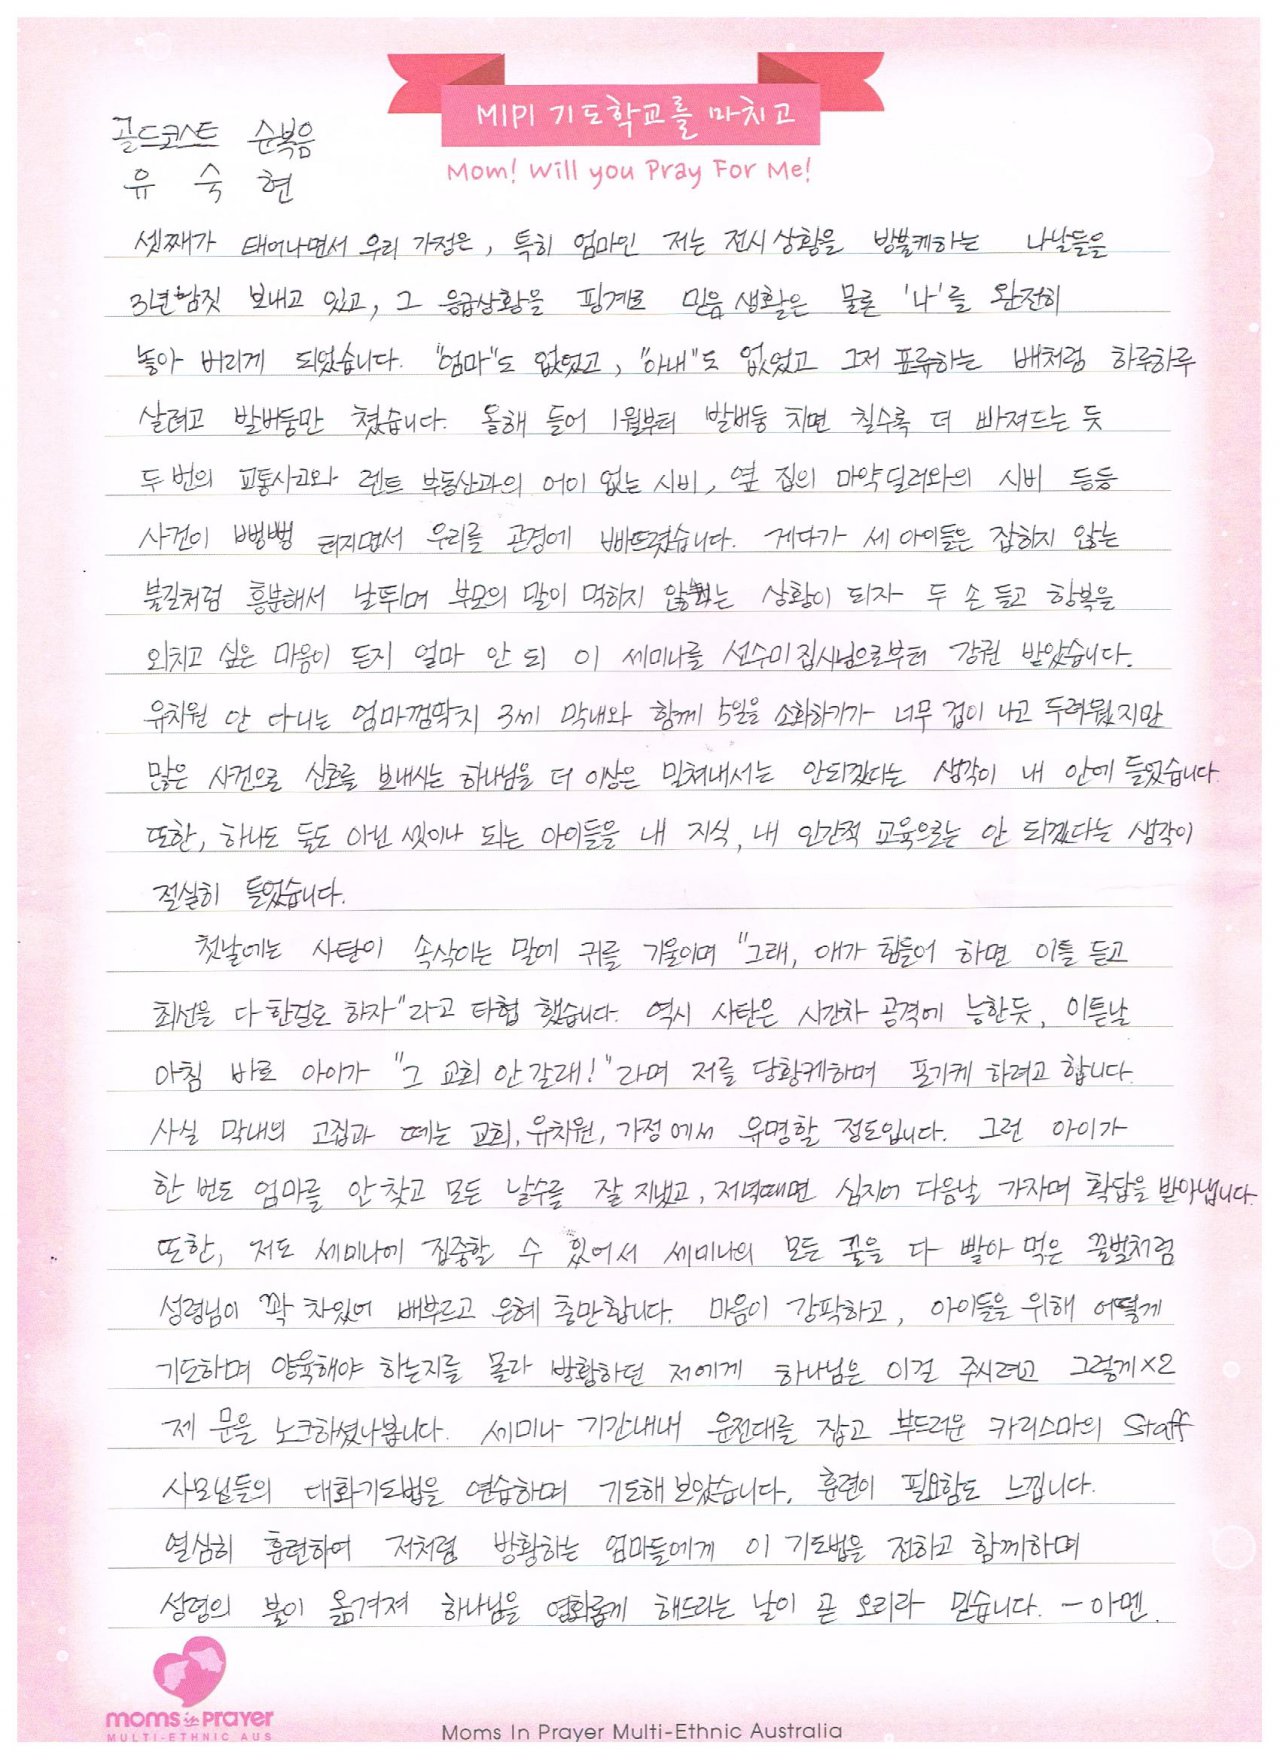 MIPI 기도학교를 마치고
Mom! Will you Pray For Me!
골드코스트 순복음
유 숙 현
셋째가 태어나면서 우리 가정은, 특히 엄마인 저는 전시 상황을 방불케하는 나날들을
3년 남짓 보내고 있고, 그 응급상황을 핑계로 믿음 생활은 물론 '나'를 완전히
놓아 버리게 되었습니다. "엄마"도 없었고, "아내"도 없었고 그저 표류하는 배처럼 하루하루
살려고 발버둥만 쳤습니다. 올해 들어 1월부터 발버둥 치면 칠수록 더 빠져드는 듯
두 번의 교통사고와 렌트 부동산과의 어이 없는 시비, 옆 집의 마약딜러와의 시비 등등
사건이 뻥뻥 터지면서 우리를 곤경에 빠뜨렸습니다. 게다가 세 아이들은 잡히지 않는
불길처럼 흥분해서 날뛰며 부모의 말이 먹히지 않는 상황이 되자 두 손 들고 항복을
외치고 싶은 마음이 든지 얼마 안 되 이 세미나를 선수미 집사님으로부터 강권 받았습니다.
유치원 안 다니는 엄마껌딱지 3세 막내와 함께 5일을 소화하기가 너무 겁이 나고 두려웠지만
많은 사건으로 신호를 보내시는 하나님을 더 이상은 밀쳐내서는 안되겠다는 생각이 내 안에 들었습니다.
또한, 하나도 둘도 아닌 셋이나 되는 아이들을 내 지식, 내 인간적 교육으로는 안 되겠다는 생각이
절실히 들었습니다.
첫날에는 사탄이 속삭이는 말에 귀를 기울이며 "그래, 애가 힘들어 하면 이틀 듣고
최선을 다 한걸로 하자"라고 타협 했습니다. 역시 사탄은 시간차 공격에 능한듯, 이튿날
아침 바로 아이가 "그 교회 안 갈래!"라며 저를 당황케하며 포기케 하려고 합니다.
사실 막내의 고집과 떼는 교회, 유치원, 가정에서 유명할 정도입니다. 그런 아이가
한 번도 엄마를 안 찾고 모든 날수를 잘 지냈고, 저녁때면 심지어 다음날 가자며 확답을 받아냅니다.
또한, 저도 세미나에 집중할 수 있어서 세미나의 모든 꿀을 다 빨아 먹은 꿀벌처럼
성령님이 꽉 차있어 배부르고 은혜 충만합니다. 마음이 강팍하고, 아이들을 위해 어떻게
기도하며 양육해야 하는지를 몰라 방황하던 저에게 하나님은 이걸 주시려고 그렇게×2
제 문을 노크하셨나봅니다. 세미나 기간내내 운전대를 잡고 부드러운 카리스마의 Staff
사모님들의 대화기도법을 연습하며 기도해 보았습니다. 훈련이 필요함도 느낍니다.
열심히 훈련하여 저처럼 방황하는 엄마들에게 이 기도법을 전하고 함께하며
성령의 불이 옮겨져 하나님을 영화롭게 해드리는 날이 곧 오리라 믿습니다. - 아멘.
moms in PRayer
MULTI-ETHNIC AUS
Moms In Prayer Multi-Ethnic Australia